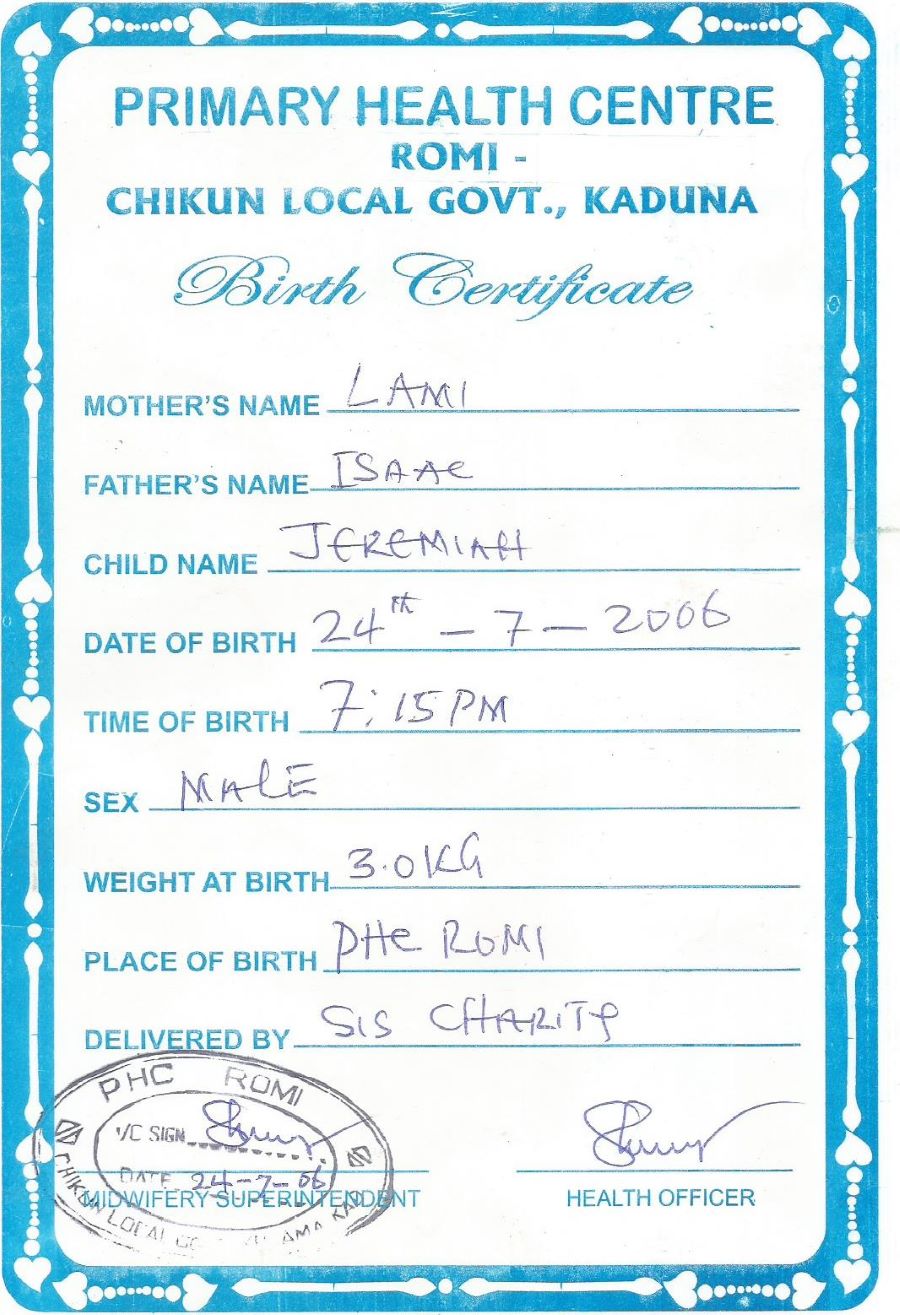 PRIMARY HEALTH CENTRE
ROMI -
CHIKUN LOCAL GOVT., KADUNA
Birth Certificate
MOTHER'S NAME LAMI
FATHER'S NAME ISAAC
CHILD NAME JEREMIAH
DATE OF BIRTH 24th - 7 - 2006
TIME OF BIRTH 7:15PM
SEX MALE
WEIGHT AT BIRTH 3.0KG
PLACE OF BIRTH PHC ROMI
DELIVERED BY SIS CHARITY
PHC ROMI
I/C SIGN
DATE 24-7-06
CHIKUN LOCAL
MIDWIFERY SUPERINTENDENT
HEALTH OFFICER